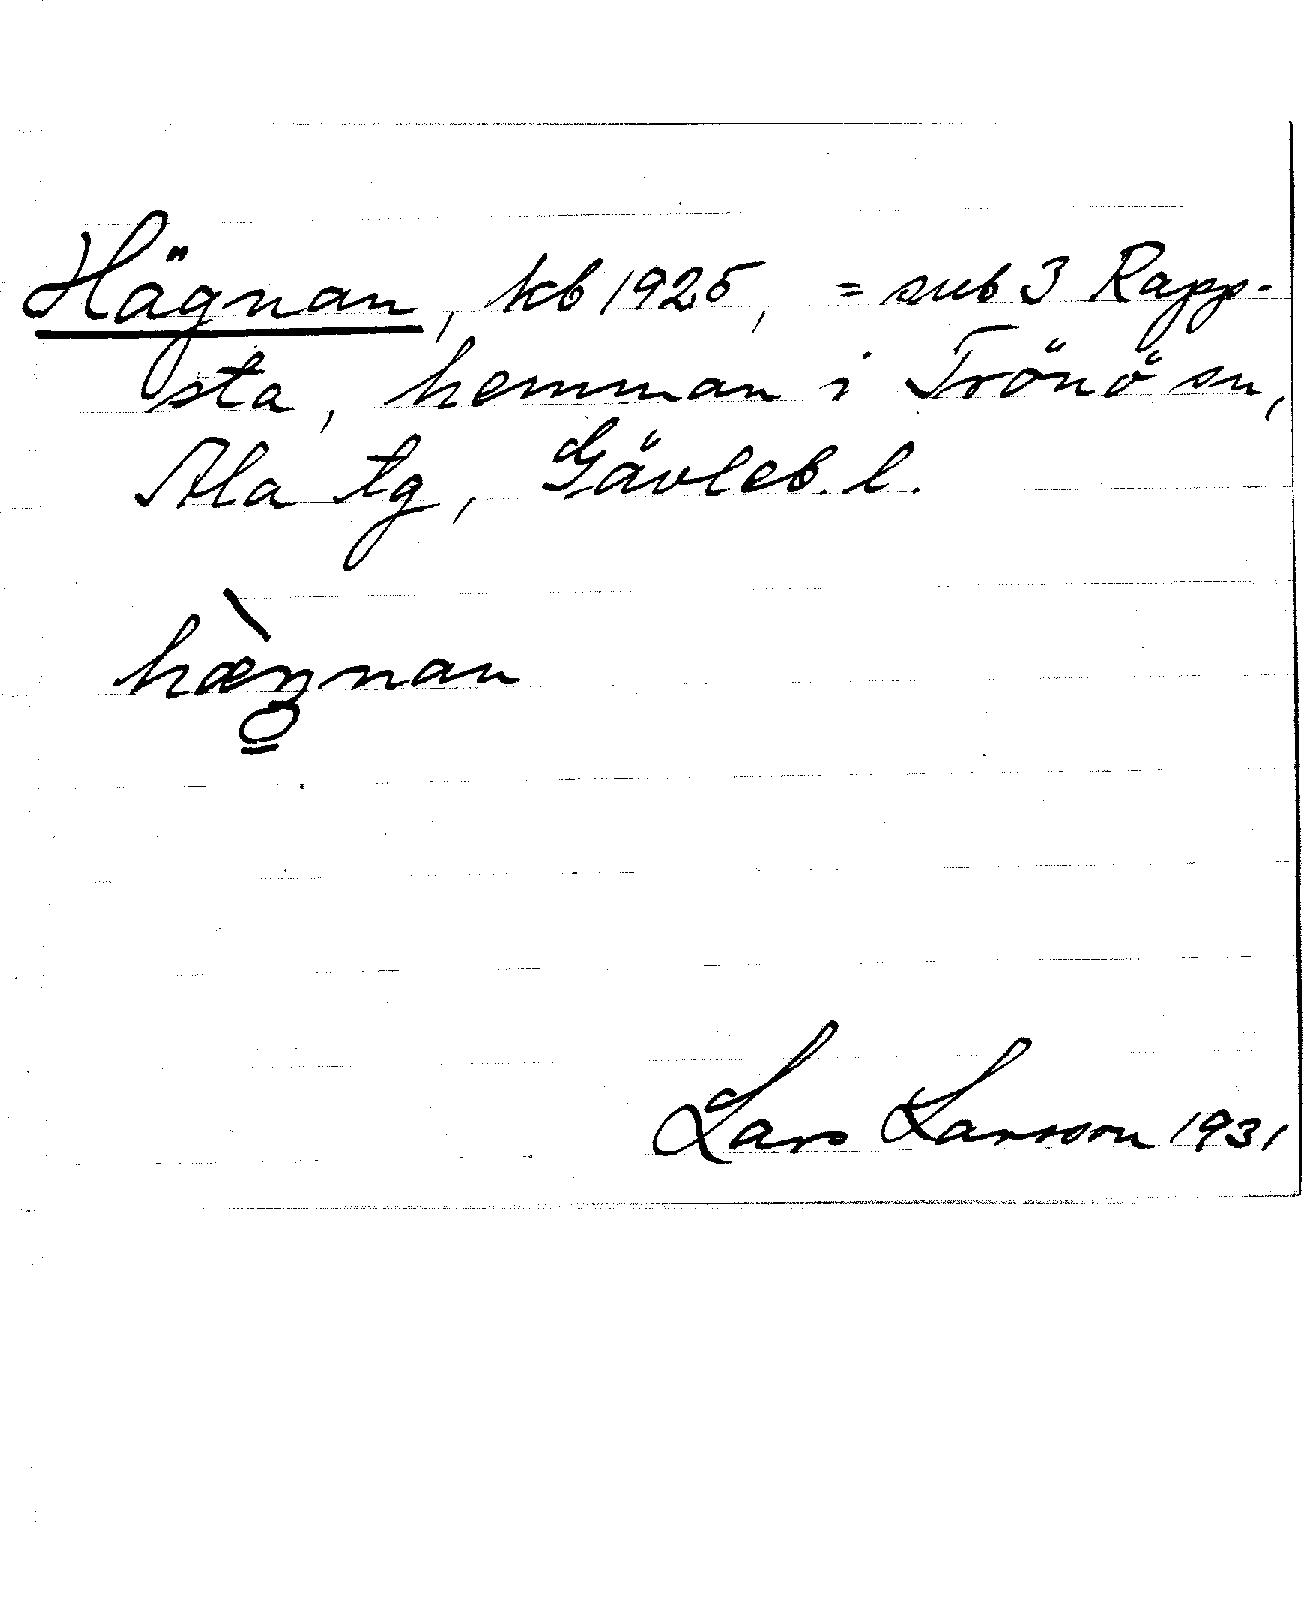 Hägnan, kb 1925, = sub 3 Rapp-
sta, hemman i Trönö sn,
Ala tg, Gävleb. l.
hæ̀ŋnan
Lars Larsson 1931